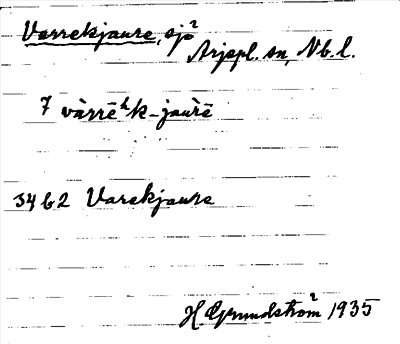 Varrekjaure, sjö
Arjepl. sn, Nb. l.
7 vàrrē ͪk-jaùrē
34 b 2 Varekjaure
H. Grundström 1935